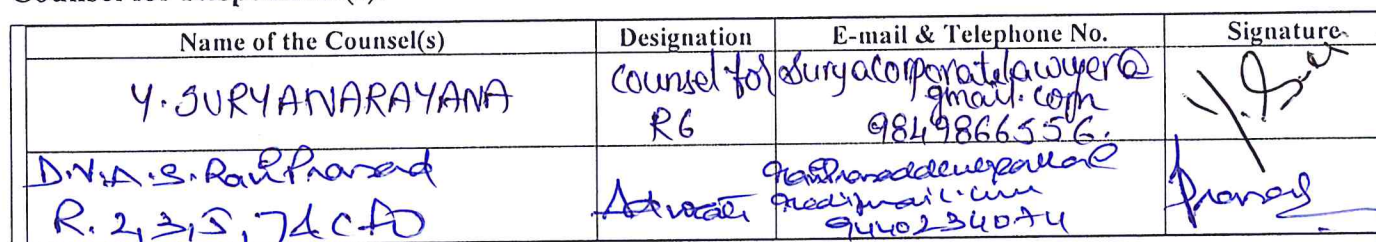 Name of the Counsel(s) Designation E-mail & Telephone No. Signature
Y. SURYANARAYANA Counsel for R6 Suryacorporatelawyer@gmail.com 9849866556.
D.V.A.S. Ravi Prasad Advocate
R. 2, 3, 5, 7 9440234074 Prasad